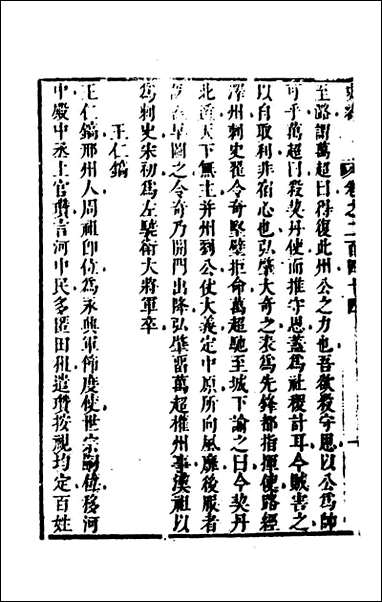 卷之二百四十四
至路謂萬超曰得復此州公之力也吾欲殺守恩以公爲帥
可乎萬超曰殺契丹使而推守恩蓋爲社稷計耳今賊害之
以自取利非宿心也弘肇大奇之表爲先鋒都指揮使路經
澤州刺史翟令奇堅壁拒命萬超馳至城下諭之曰今契丹
北遁天下無主并州劉公仗大義定中原所向風靡後服者
族盍早圖之令奇乃開門出降弘肇留萬超權州事漢祖以
爲刺史宋初爲左驍衛大將軍卒
王仁鎬
王仁鎬邢州人周祖卽位爲永興軍節度使世宗嗣位移河
中殿中丞上官瓚言河中民多匿田租遣瓚按視均定百姓